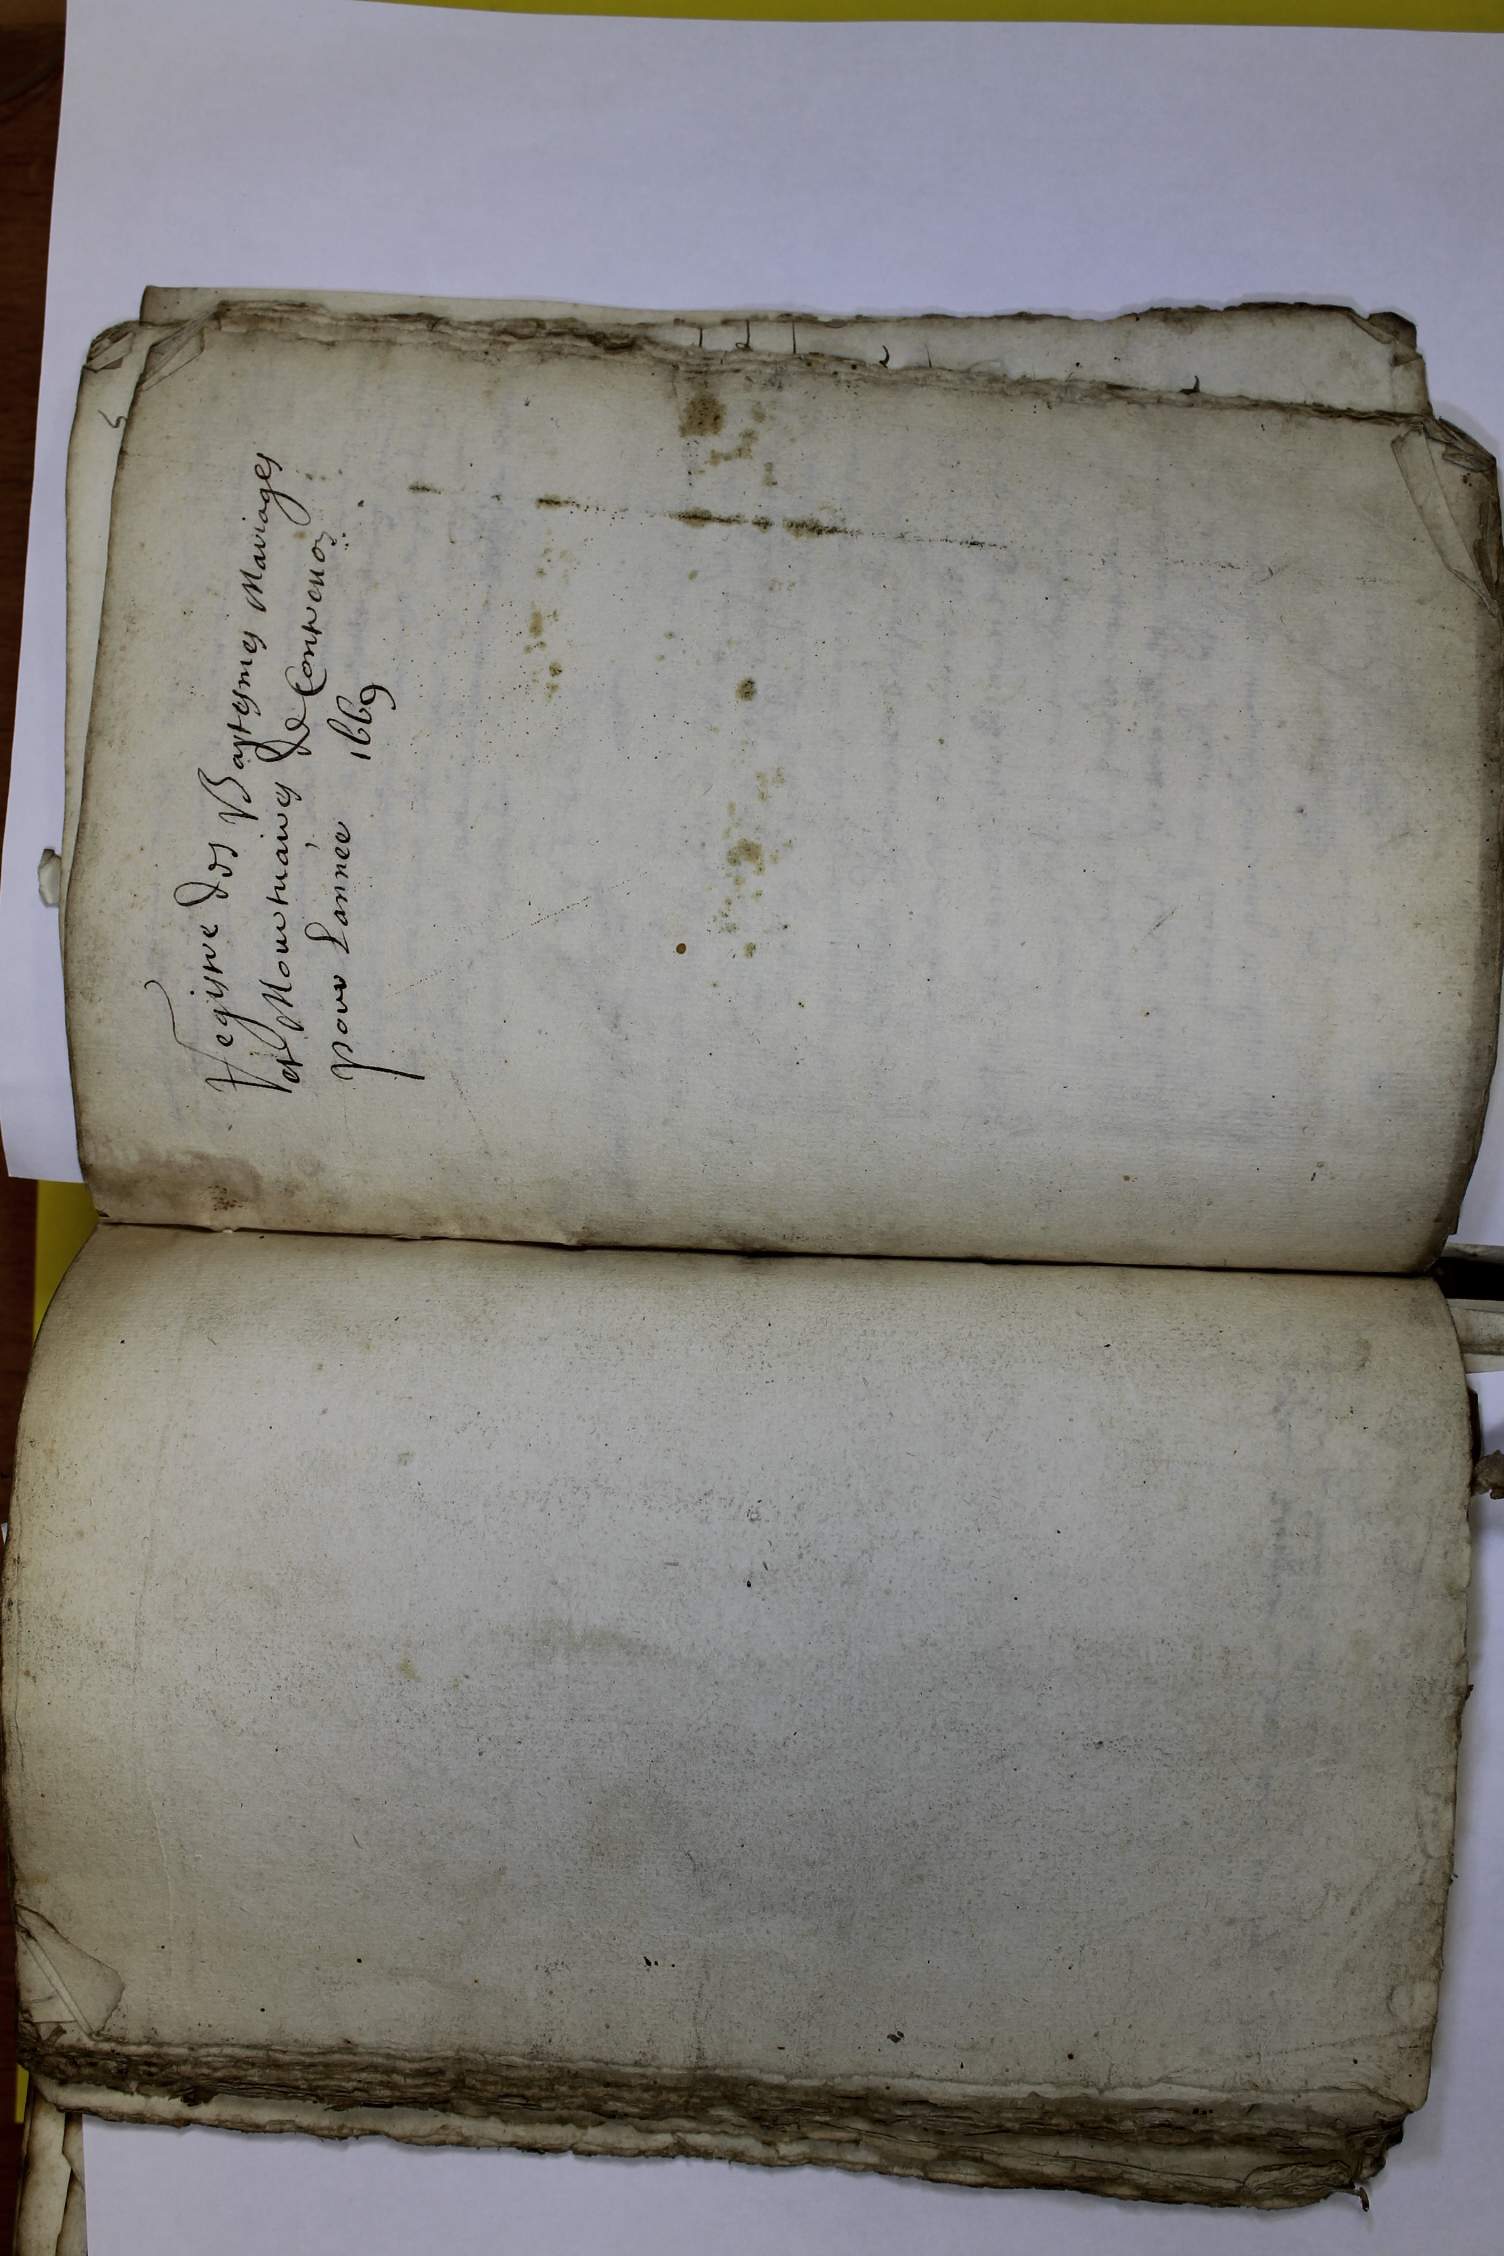 Regisre des Baptesmes Mariages
et Mortuaires de Contrenoz
pour Lannee 1669